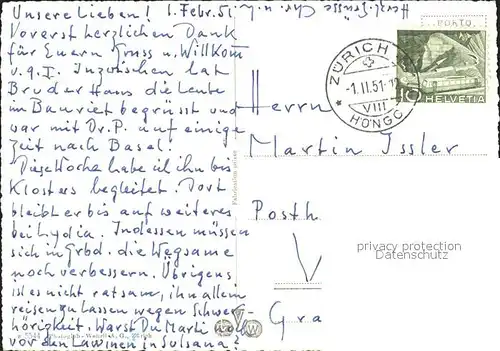 Unsere Lieben! 1. Febr. 51
Vorerst herzlichen Dank
für Euern Gruss u. Willkom
Inzwischen hat
Bruder Hans die Leute
im Bauriet begrüsst und
war mit Dr. P. auf einige
Zeit nach Basel.
Diese Woche habe ich ihn bis
Klosters begleitet. Dort
bleibt er bis auf weiteres
bei Lydia. Indessen müssen
sich in Grbd. die Wegsame
noch verbessern. Übrigens
ist es nicht ratsam, ihn allein
reisen zu lassen wegen Schwer-
hörigkeit. Warst Du Marti
vor den Lawinen in Sulsana?
Herzl. Grüsse Chr. u. L.
PORTO
10 HELVETIA
ZÜRICH
-1.II.51-12
VIII
HÖNGG
Herrn
Martin Issler
Posth
Gra
privacy protection
Datenschutz
5544 Photoglob-Wehrli A. G., Zürich